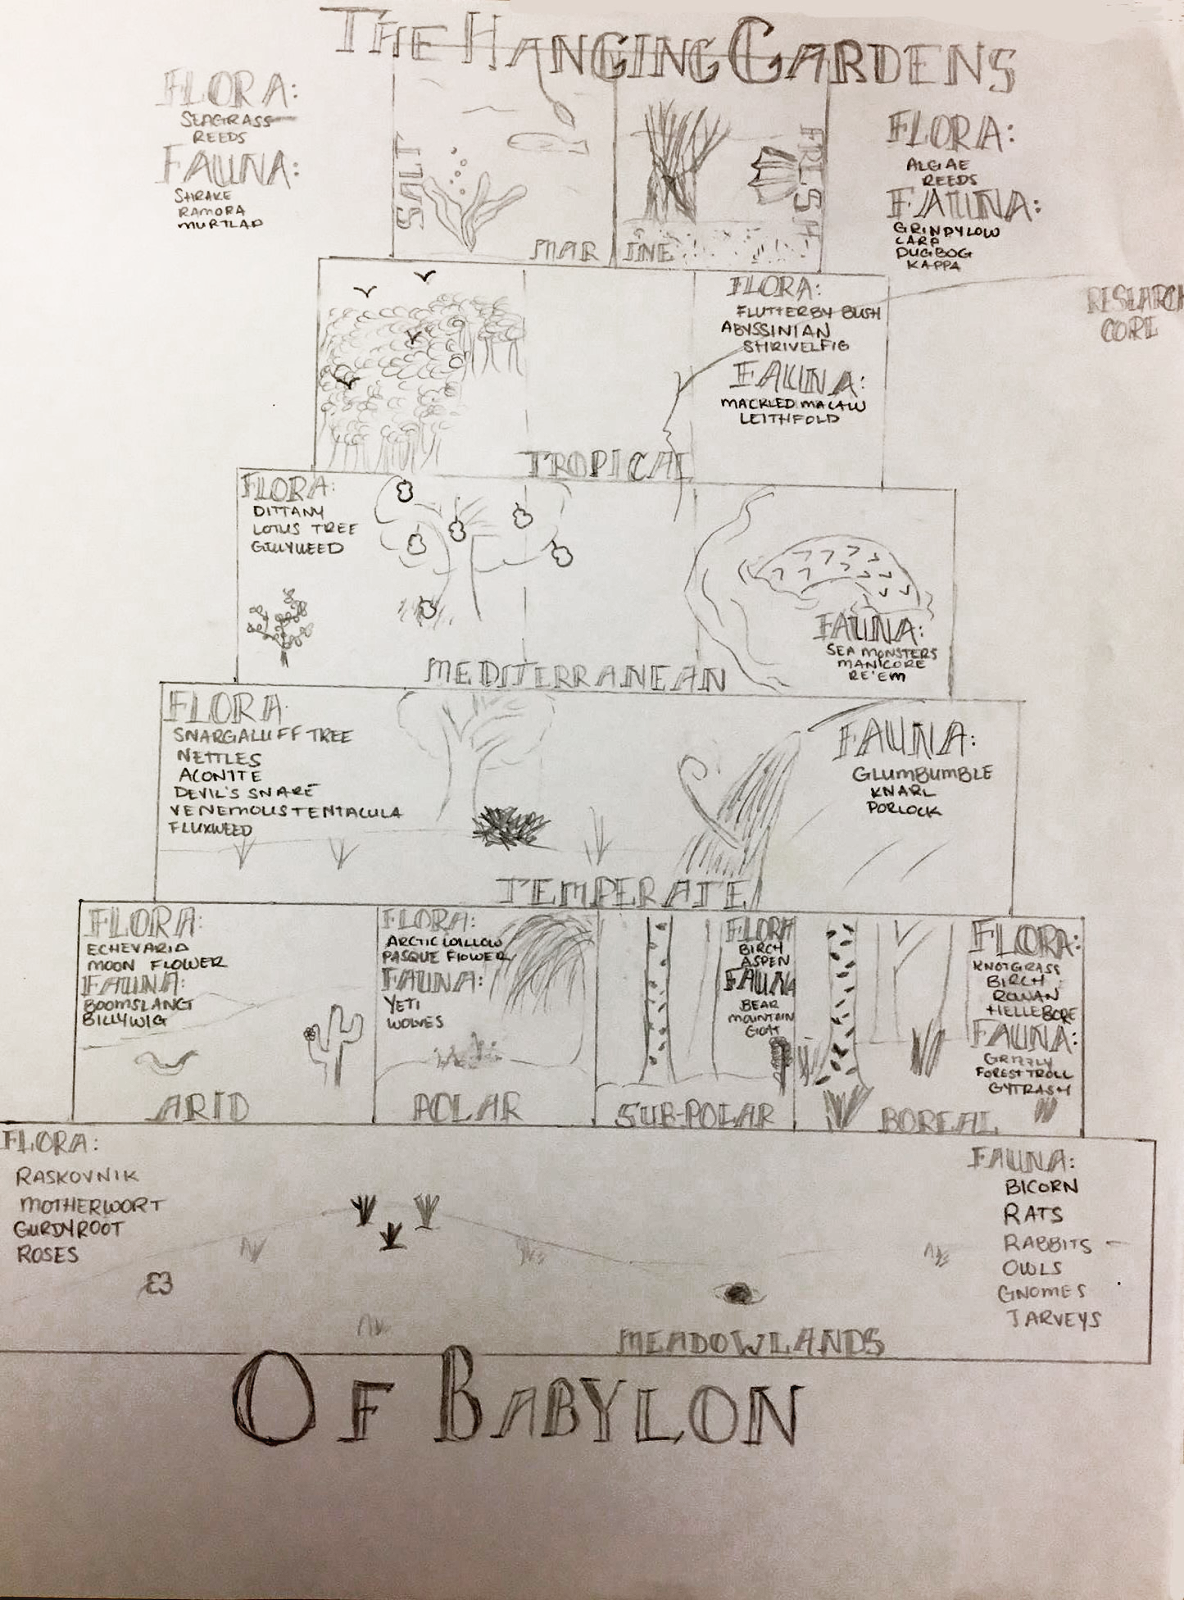 THE HANGING GARDENS
FLORA:
SEAGRASS
REEDS
FAUNA:
SHRAKE
RAMORA
MURTLAP
SALT
MAR INE
FRESH
FLORA:
ALGAE
REEDS
FAUNA:
GRINDYLOW
CARP
DUGBOG
KAPPA
RESEARCH
CORE
FLORA:
FLUTTERBY BUSH
ABYSSINIAN
SHRIVELFIG
FAUNA:
MACKLED MACAW
LEITHFOLD
TROPICAL
FLORA:
DITTANY
LOTUS TREE
GILLYWEED
FAUNA:
SEA MONSTERS
MANICORE
RE'EM
MEDITERRANEAN
FLORA
SNARGALUFF TREE
NETTLES
ACONITE
DEVIL'S SNARE
VENEMOUS TENTACULA
FLUXWEED
FAUNA:
GLUMBUMBLE
KNARL
PORLOCK
TEMPERATE
FLORA:
ECHEVARIA
MOON FLOWER
FAUNA:
BOOMSLANG
BILLYWIG
ARID
FLORA:
ARCTIC WILLOW
PASQUE FLOWER
FAUNA:
YETI
WOLVES
POLAR
FLORA
BIRCH
ASPEN
FAUNA
BEAR
MOUNTAIN
GOAT
SUB-POLAR
FLORA:
KNOTGRASS
BIRCH
ROWAN
HELLEBORE
FAUNA:
GRIZZLY
FOREST TROLL
GYTRASH
BOREAL
FLORA:
RASKOVNIK
MOTHERWORT
GURDYROOT
ROSES
FAUNA:
BICORN
RATS
RABBITS
OWLS
GNOMES
JARVEYS
MEADOWLANDS
OF BABYLON